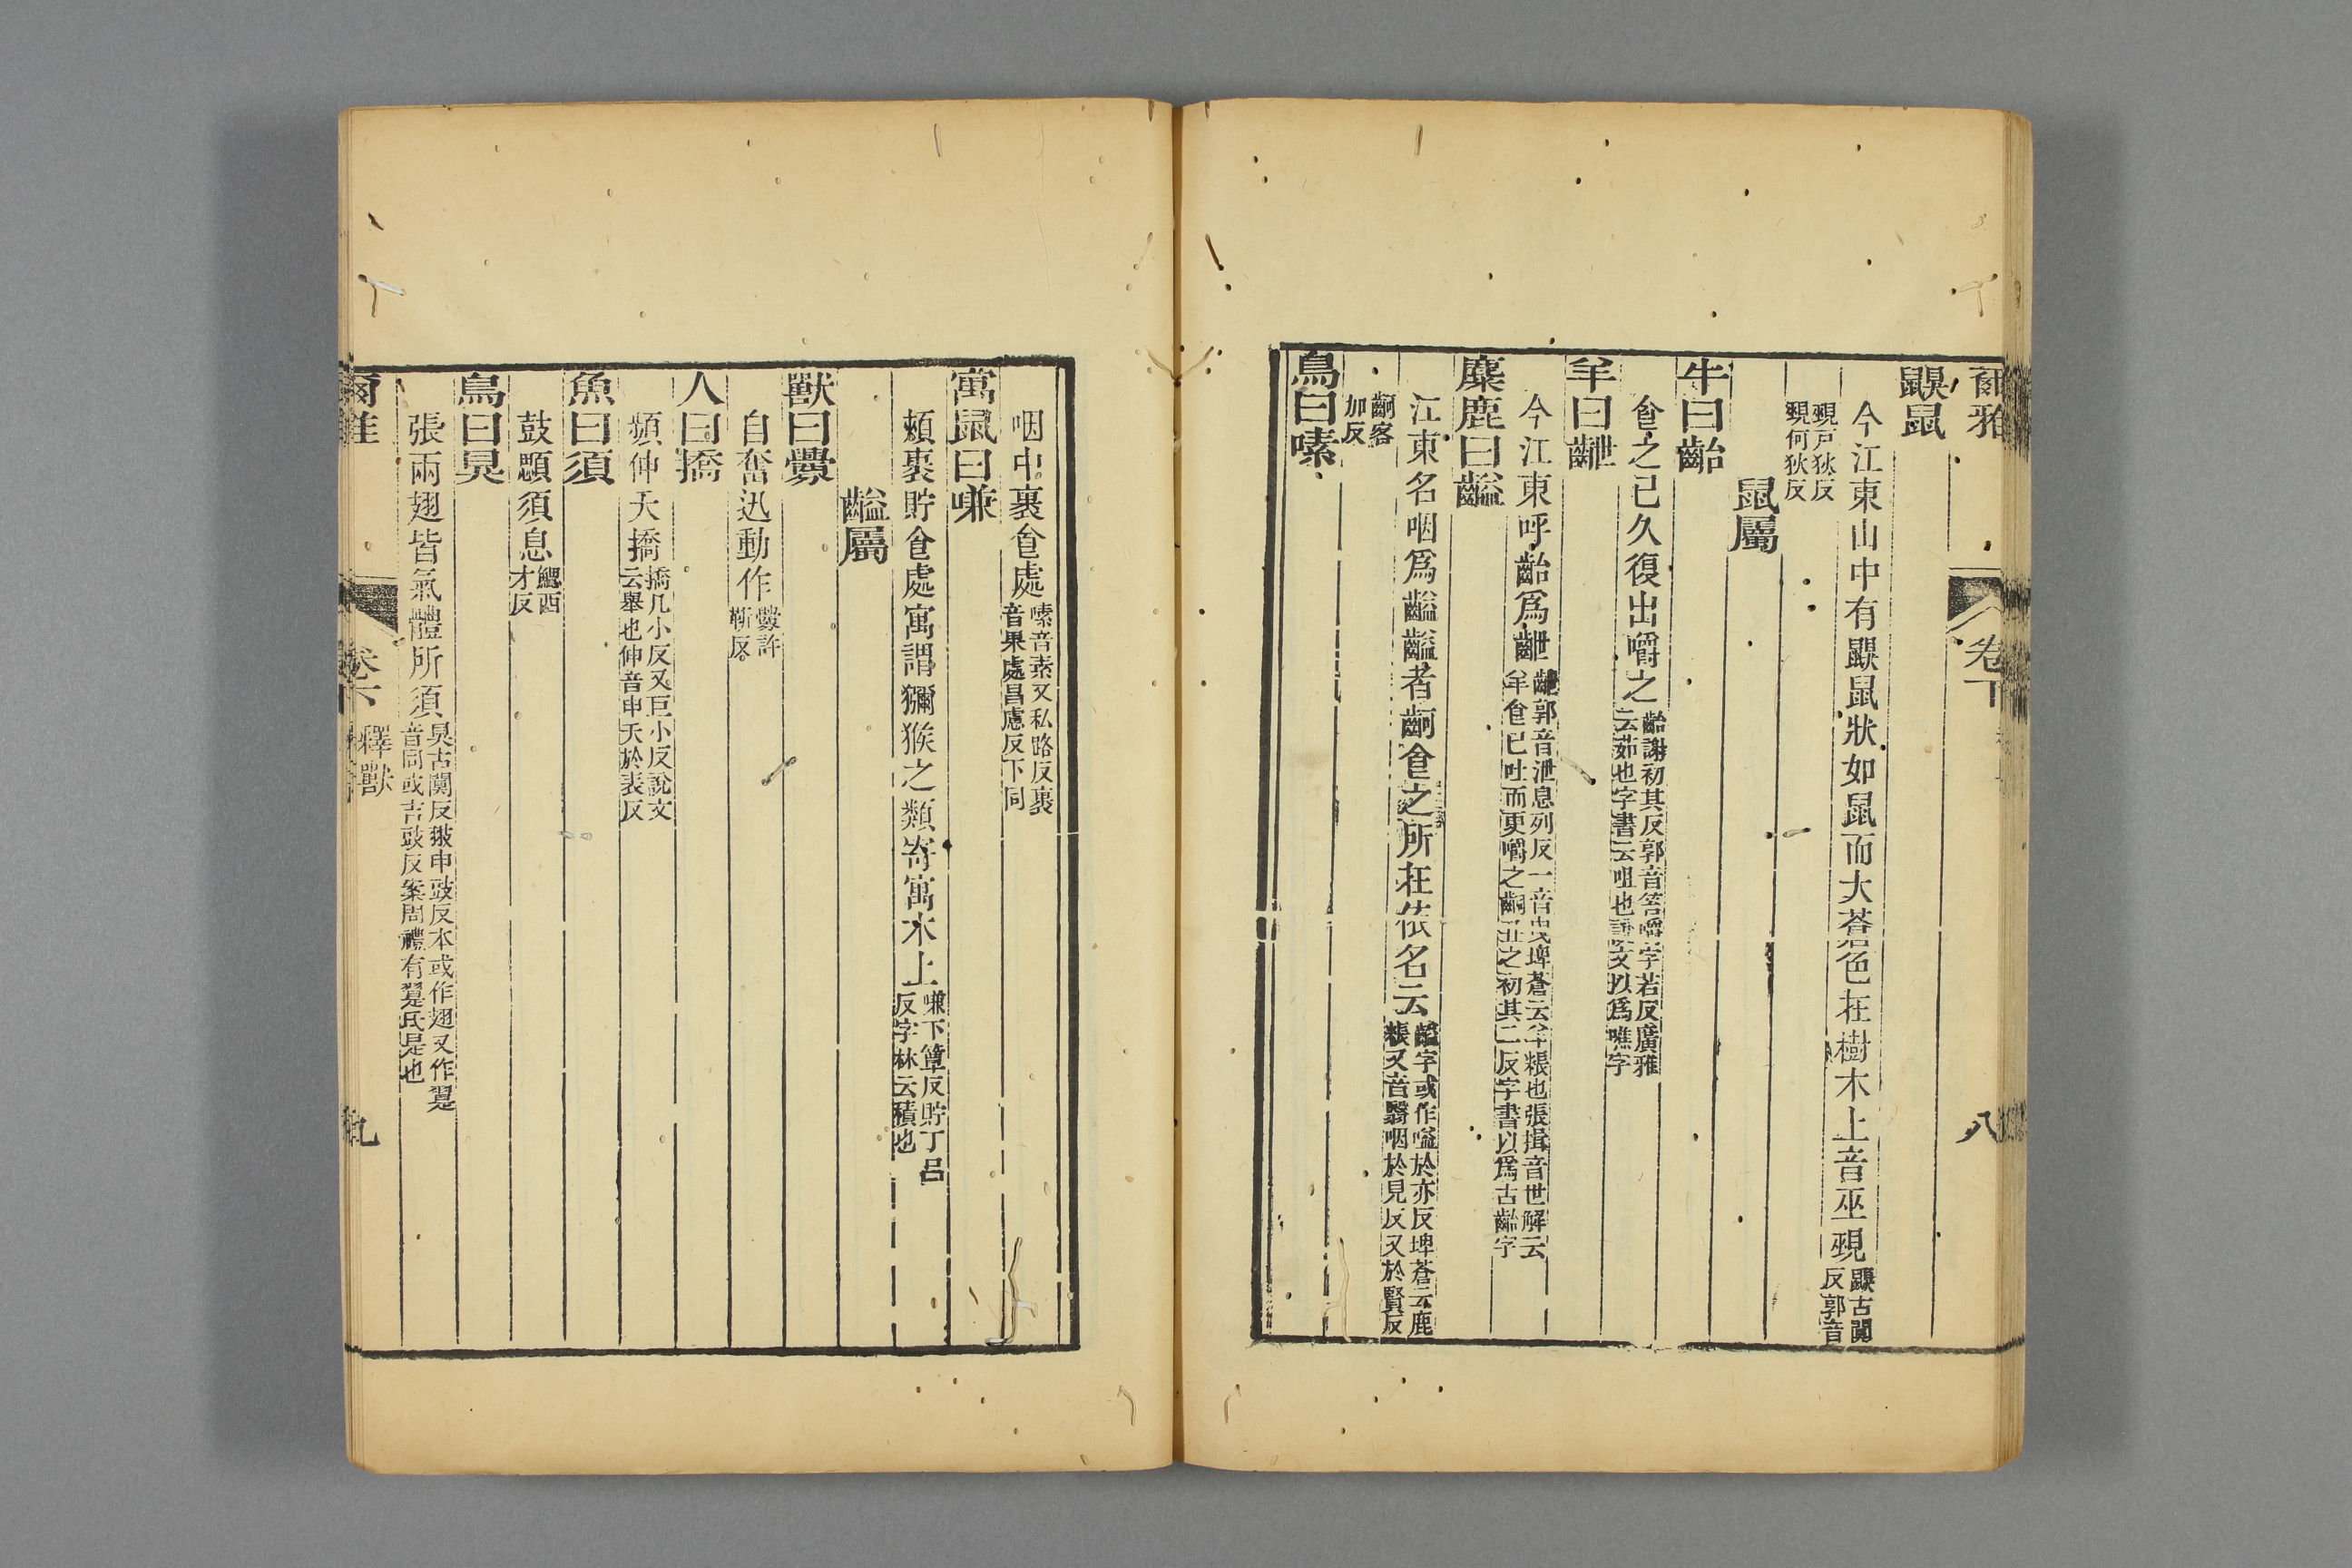 爾雅 卷下 八
鼳鼠
今江東山中有鼳鼠狀如鼠而大蒼色在樹木上音巫覡鼳古闃反郭音
覡戶狄反覡何狄反
鼠屬
牛曰齝
食之已久復出嚼之齝謝初其反郭音笞嚼字若反廣雅云茹也字書云咀也說文以爲噍字
羊曰齥
今江東呼齝爲齥齥郭音泄息列反一音曳埤蒼云羊粻也張揖音世解云羊食已吐而更嚼之
麋鹿曰齸
江東名咽爲齸齸者齝食之所在依名云齸字或作嗌於亦反埤蒼云鹿粻又音翳咽於見反又於賢反
加反
鳥曰嗉
咽中裹食處嗉音素又私路反裹音果處昌慮反下同
寓鼠曰嗛
頰裹貯食處寓謂獼猴之類寄寓木上嗛下簟反貯丁呂反字林云積也
齸屬
獸曰釁
自奮迅動作釁許靳反
人曰撟
頻伸夭撟撟几小反又巨小反說文云舉也伸音申夭於表反
魚曰須
鼓顋須息鰓西才反
鳥曰狊
張兩翅皆氣體所須狊古闃反翄申豉反本或作翅又作翨音同或吉豉反案周禮有翨氏是也
爾雅 卷下 釋獸 九